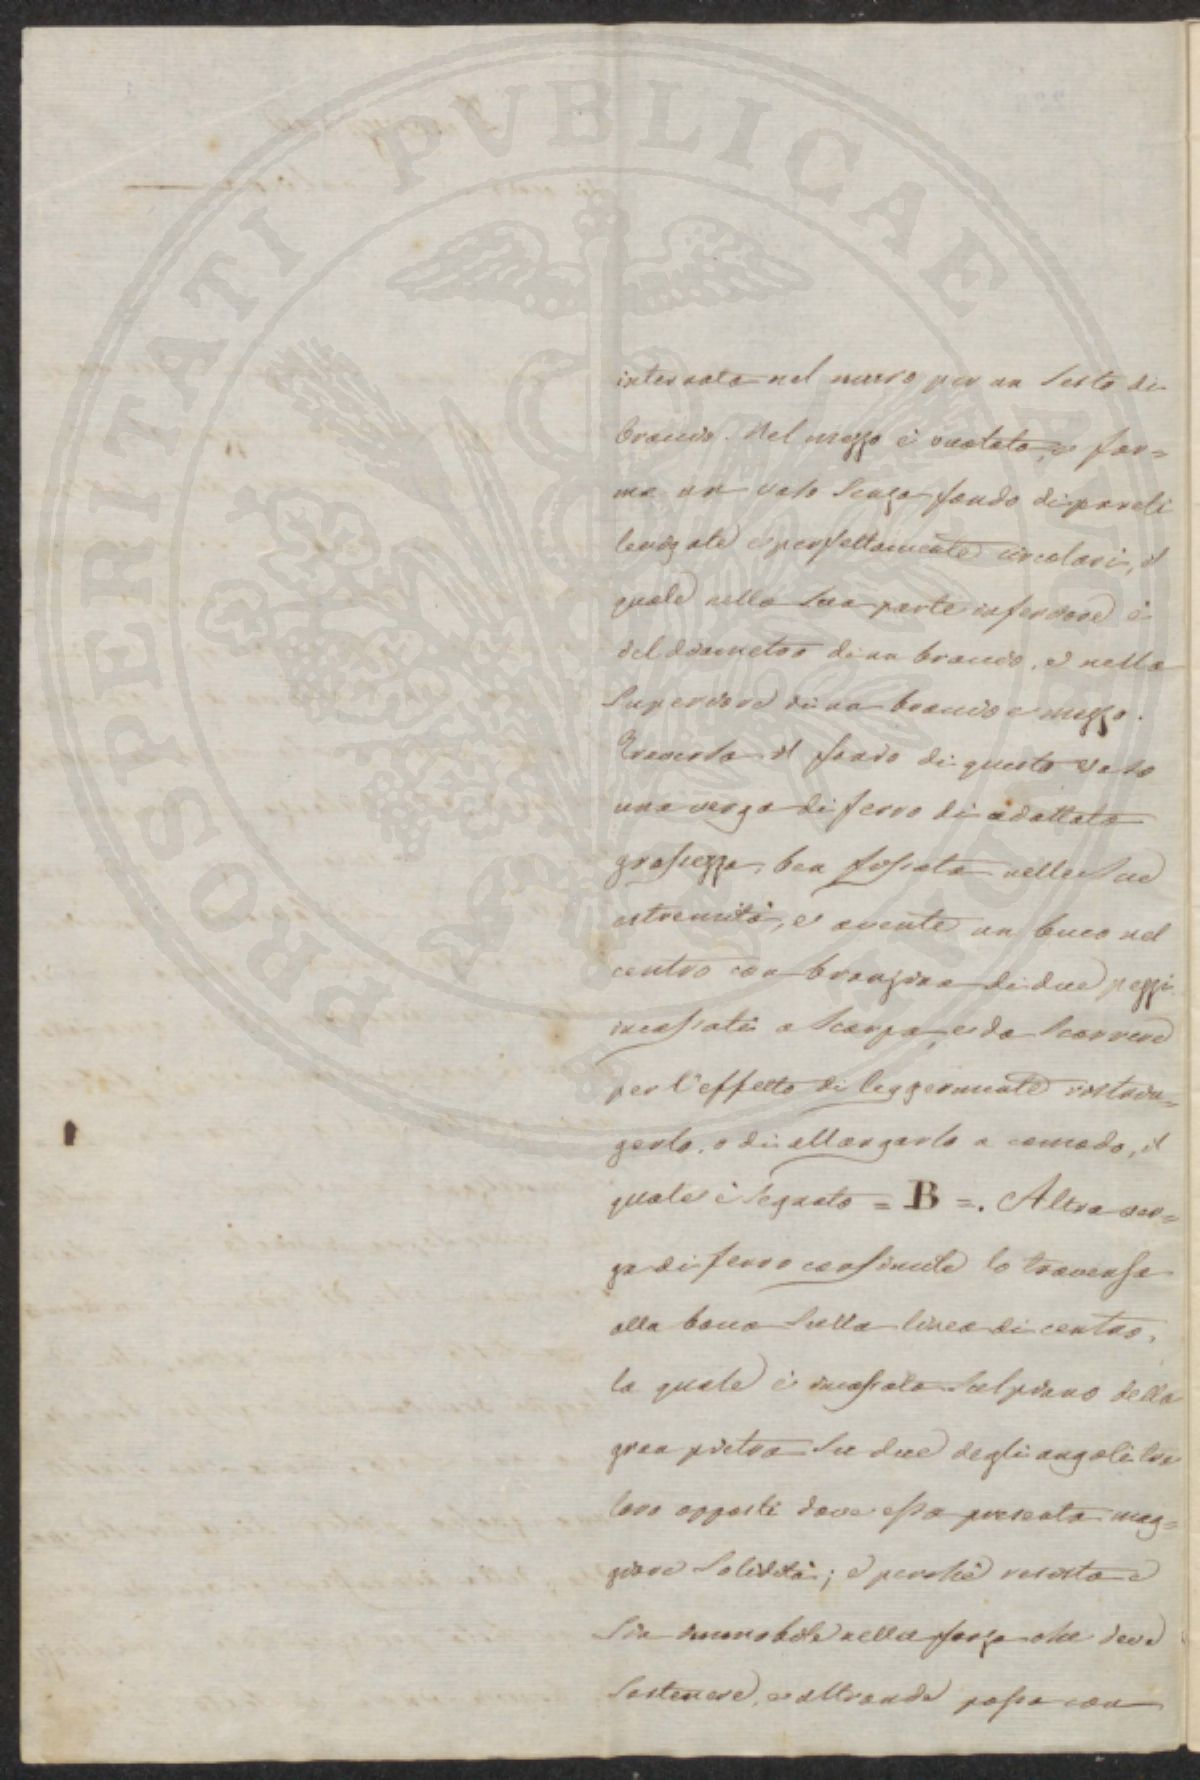 PROSPERITATI PUBLICAE
internata nel muro per un sesto di
braccio. Nel mezzo è vuotata, e for=
ma un vaso senza fondo di pareti
levigate e perfettamente circolari, il
quale nella sua parte inferiore è
del diametro di un braccio, e nella
superiore di un braccio e mezzo.
Traversa il fondo di questo vaso
una verga di ferro di adattata
grossezza, ben fissata nelle sue
estremità, e avente un buco nel
centro con bronzina di due pezzi
incassati a scarpa, e da scorrere
per l'effetto di leggermente ristrin=
gerlo, o di allargarlo a comodo, il
quale è segnato = B =. Altra ver=
ga di ferro consimile lo traversa
alla bocca sulla linea di centro,
la quale è incassata sul piano della
gran pietra su due degli angoli tra
loro opposti dove essa presenta mag=
giore solidità; e perché resista e
sia immobile nella forza che deve
sostenere, e altronde possa con